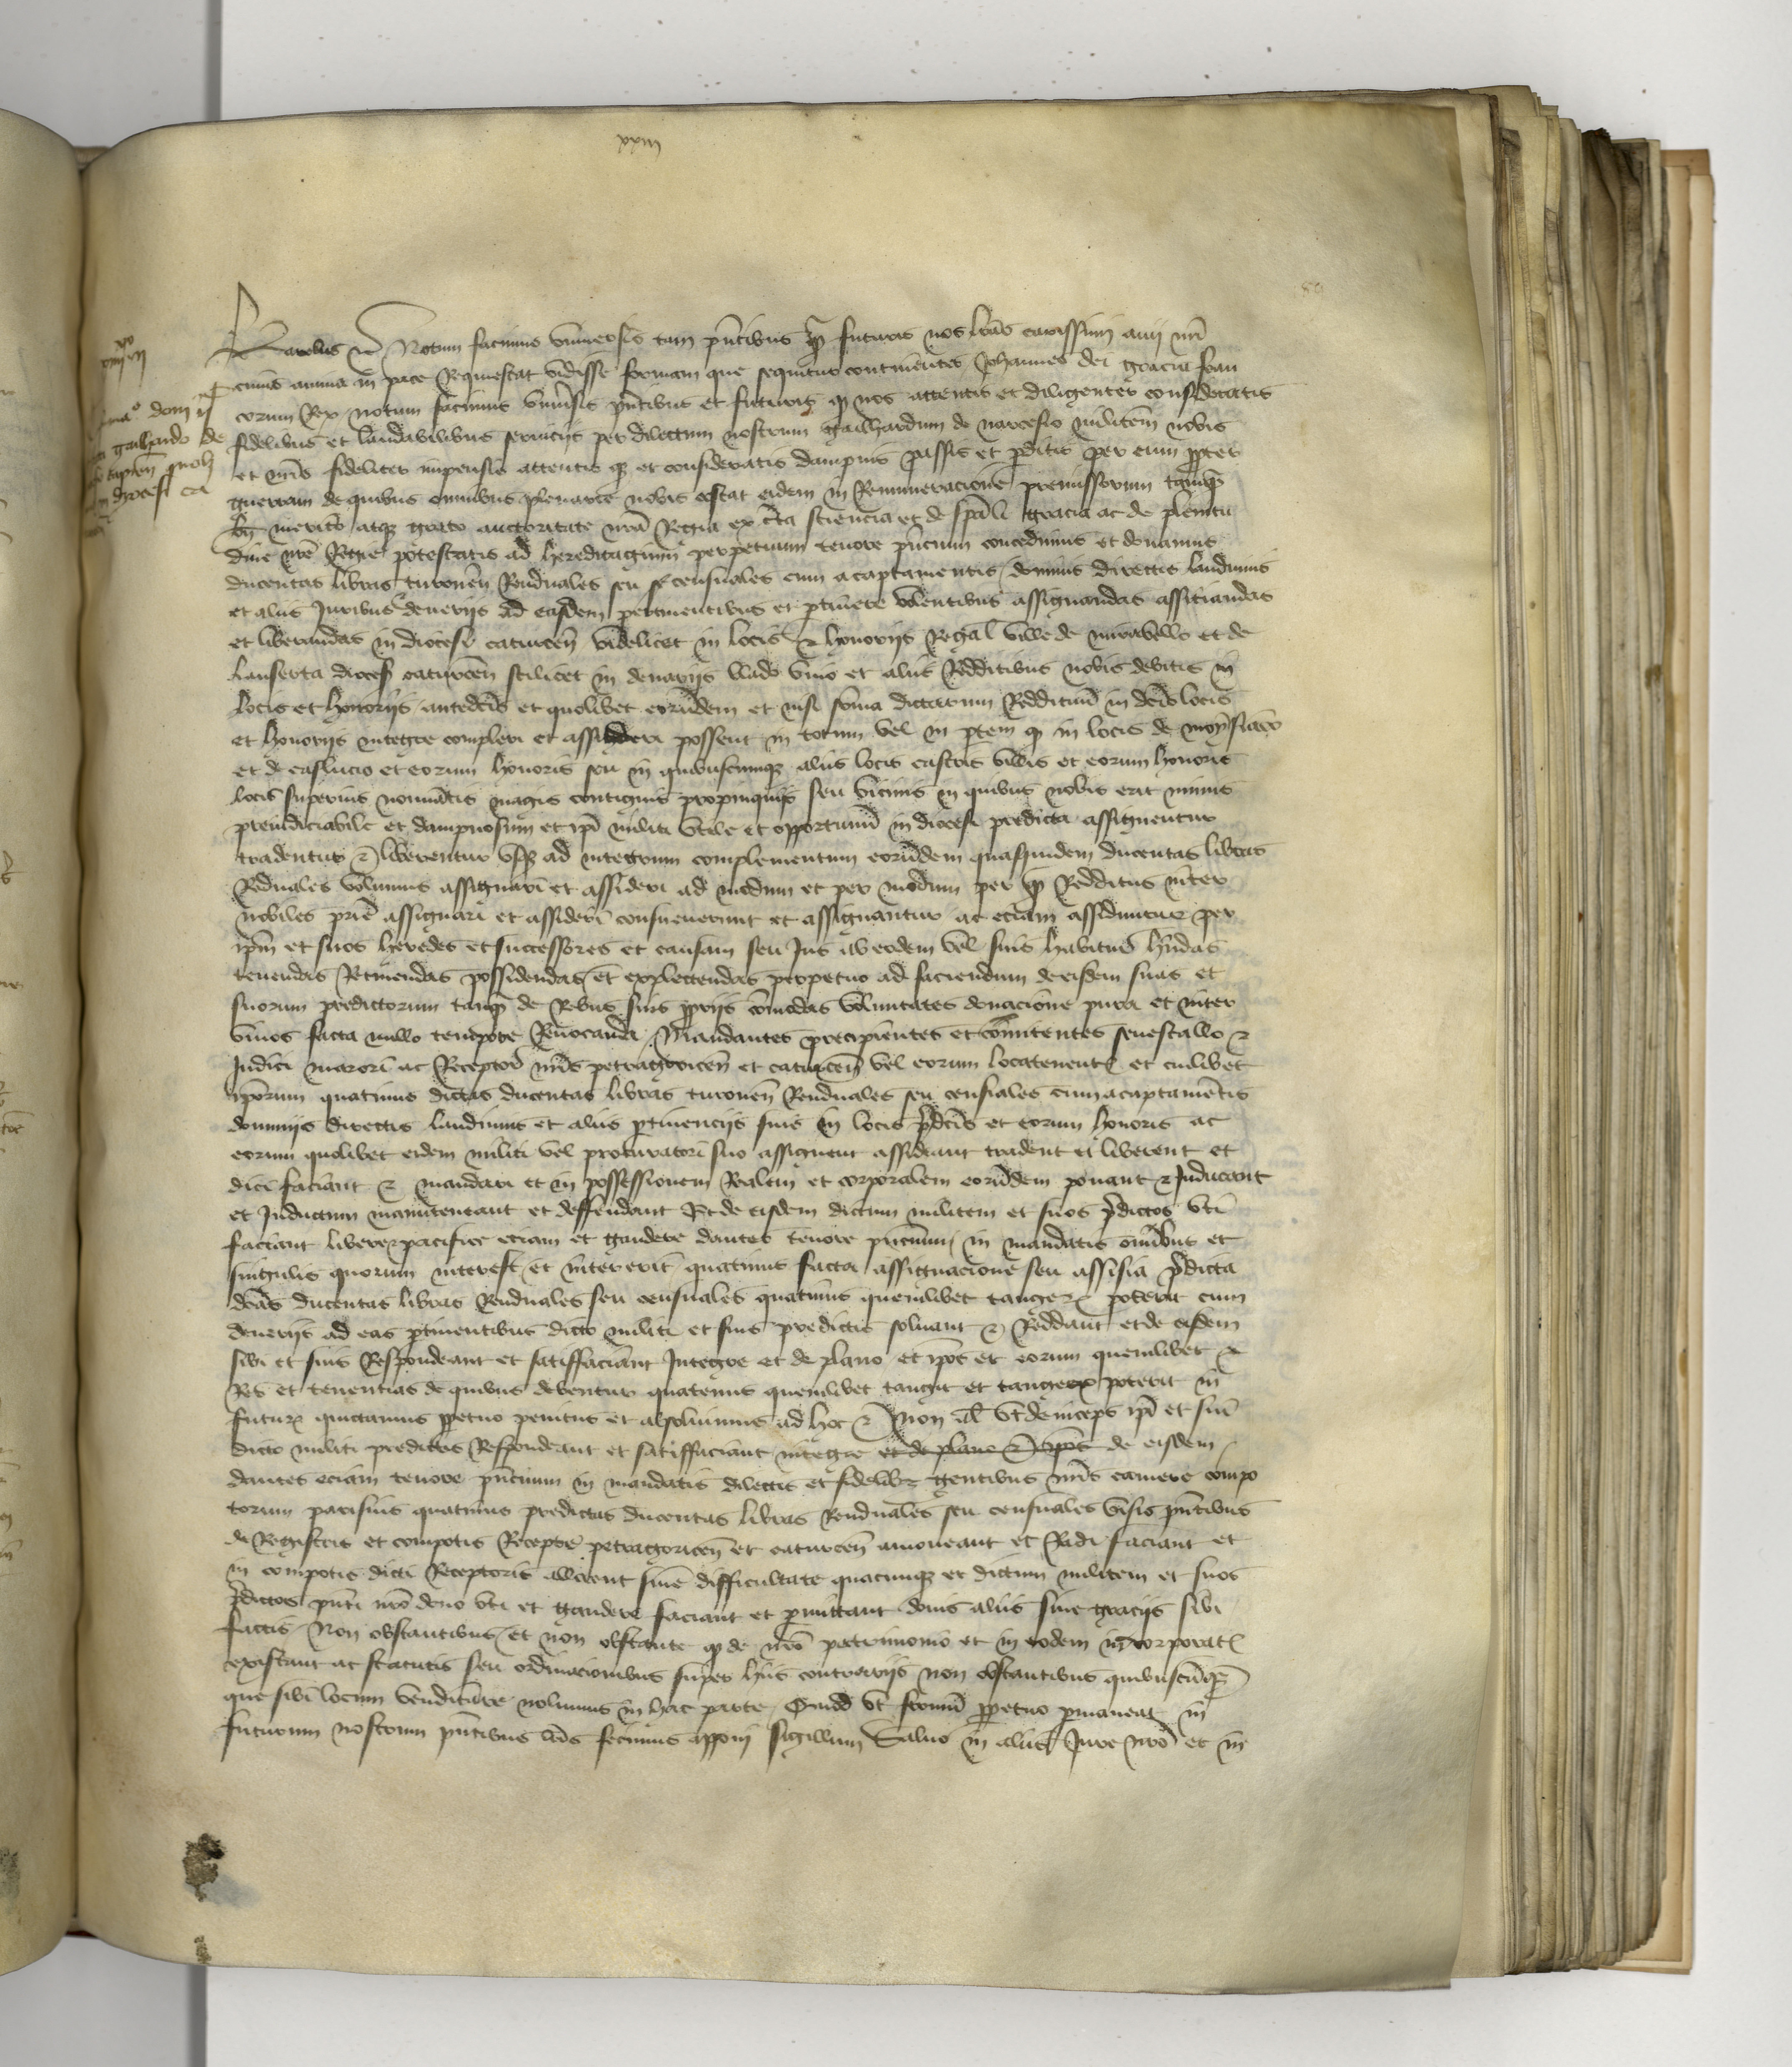 xxiii
xx
iiii vii
dom
gailhardo de
Karolus etc Notum facimus universis tam pñtibus q̃ futuris nos lrãs carissimi avii nrĩ
cuius anima in pace Requiescat vidisse formam que sequitur continentes Johannes dei gracia fran
corum Rex notum facimus univ̾sis pñtibus et futuris q̃ nos attentis et diligenter consideratis
fidelibus et laudabilibus serviciis per dilectum nostrum Gailhardum de militem nobis
et nrĩs fideliter impensis attentis q3 et consideratis dampnis passis et perditis per eum ꝓpter
guerram de quibus omnibus plenarie nobis cõstat eidem in Remuneracione premissorum tanq̃
bñ merito atq3 grato auctoritate nrã Regia ex c̃ta sciencia et de spãli gracia ac de plenitu
dine nrẽ Regie potestatis ad hereditagium perpetuum tenore pñcium concedimus et donamus
ducentas libras turoneñ Renduales seu censuales cum acaptamentis dominiis directis laudimiis
et aliis Juribus deveriis ad easdem pertinentibus et ꝑtinere volentibus assignandas assitiandas
et liberandas in diocesi caturceñ videlicet in locis et honoriis Regal ville de mirabello et de
Lauserta dioces̃ caturceñ scilicet in denariis blado vino et aliis Redditibus nobis debitis in
locis et honoriis antedc̃is et quolibet eorũdem et nisi sõma dictarum Reddituũ in dc̃is locis
et honoriis integre compleri et assideri possent in totum vel in ꝑtem q̃ in locis de
et de caslucio et eorum honoris seu in quibuscumq3 aliis locis castris villis et eorum honoris
locis superius noiãtis magis contiguis propinquis seu vicinis in quibus nobis erit minus
preiudiciabile et dampnosum et ipĩ militi utile et opportunũ in diocesi predicta assignentur
tradentur et liberentur usq3 ad integrum complementum eorũdem quasquidem ducentas libras
Rẽduales volumus assignari et assideri ad modum et per modum per q̃ Redditus inter
nobiles priẽ assignari et assideri consueverunt et assignantur ac eciam assiduntur per
ipm̃ et suos heredes et successores et causam seu Jus ab eodem vel suis habituros hñdas
tenendas Retinendas possidendas et explectendas perpetuo ad faciendum de eisdem suas et
suorum predictorum tanq̃ de Rebus suis ꝓpriis cõmodas voluntates donacione pura et inter
vivos facta nullo tempore Revocanda Mandantes precipientes et cõmitentes senescallo et
Judici maiori ac Receptori nrĩs petragoriceñ et caturceñ vel eorum locatenent̃ et cuilibet
ip̃orum quatinus dictas ducentas libras turoneñ Renduales seu censuales cum acaptamẽtis
dominiis directis laudimiis et aliis ꝑtinenciis suis in locis p̃dc̃is et eorum honoris ac
eorum quolibet eidem militi vel procuratori suo assignent assideant tradent et liberent et
dici faciant et mandari et in possessionem Realem et corporalem eorũdem ponant et Inducant
et Inductum manuteneant et deffendant Et de eisdem dictum militem et suos p̃dictos uti
faciant libere et pacifice eciam et gaudere dantes tenore pñcium in mandatis om̃ibus et
singulis quorum interest et intererit quatinus facta assignacione seu assisia p̃dicta
dc̃as ducentas libras Renduales seu censuales quatinus quemlibet tanger̃ poterit cum
deveriis ad eas ꝑtinentibus dicto militi et suis predictis solvant et Reddant et de eisdem
sibi et suis Respondeant et satisfaciant Integre et de plano et ip̃os et eorum quemlibet et
Res et tenentias de quibus debentur quatenus quemlibet tangit et tangere poterit in
futur̃ quictamus ꝑpetuo penitus et absolvimus ad hoc et non al̃ ut deinceps ipĩ et sui
dicto militi predictis Respondeant et satisfaciant integre et de plano et ip̃os de eisdem
dantes eciam tenore pñcium in mandatis dilectis et fidelib3 gentibus nrĩs camere compo
torum parisius quatinus predictas ducentas libras Renduales seu censuales visis pñtibus
de Registris et compotis Recepte petragoriceñ et caturceñ amoveant et Radi faciant et
in compotis dicti Receptoris allocent sine difficultate quacunq3 et dictum militem et suos
p̃dictos pñti nrõ dono uti et gaudere faciant et ꝑmittant donis aliis sive graciis sibi
factis Non obstantibus et non obstante q̃ de nrõ patrimonio et in eodem incorporat̃
existant ac statutis seu ordinacionibus super hiis contrariis non obstantibus quibuscũq3
que sibi locum vendicare nolumus in hac parte Quod ut firmũ ꝑpetuo ꝑmaneat in
futurum nostrum pñtibus lrĩs fecimus apponi sigillum Salvo in aliis Jure nrõ et in